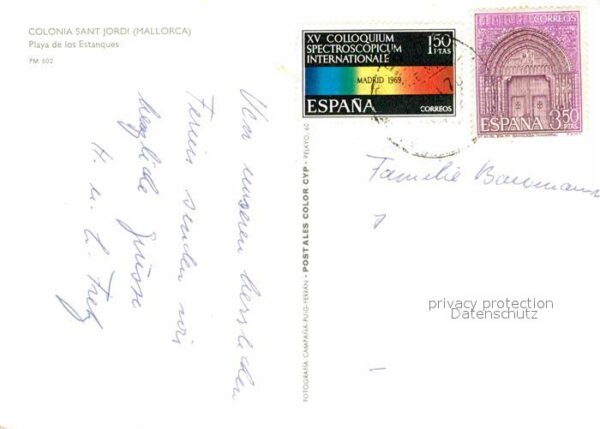 COLONIA SANT JORDI (MALLORCA)
Playa de los Estanques
PM 602
XV COLLOQUIUM
SPECTROSCOPICUM
INTERNATIONALE
1,50
PTAS
MADRID 1969
ESPAÑA
CORREOS
CORREOS
ESPAÑA
3,50
PTAS
Von unseren herrlichen
Ferien senden wir
herzliche Grüsse
H. u. L.
Familie Baumann
FOTOGRAFIA CAMPAÑA-PUIG-FERRAN - POSTALES COLOR CYP - PELAYO, 60
privacy protection
Datenschutz